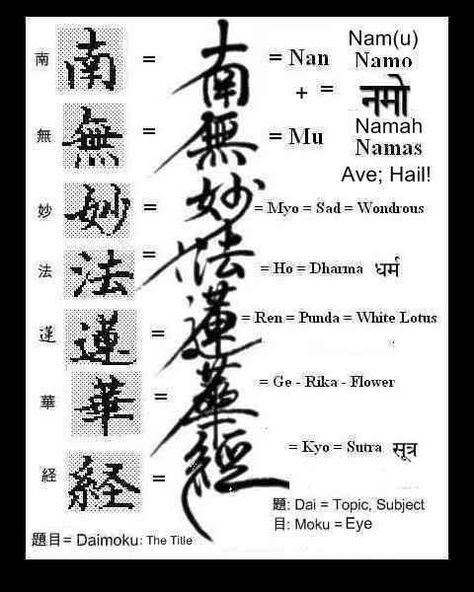 南 南 = 南 = Nan Nam(u)
Namo
+ = नमो
無 無 = 無 = Mu Namah
Namas
Ave; Hail!
妙 妙 = 妙 = Myo = Sad = Wondrous
法 法 = 法 = Ho = Dharma धर्म
蓮 蓮 = 蓮 = Ren = Punda = White Lotus
華 華 = 華 = Ge - Rika - Flower
経 経 = 經 = Kyo = Sutra सूत्र
題: Dai = Topic, Subject
目: Moku = Eye
題目 = Daimoku: The Title